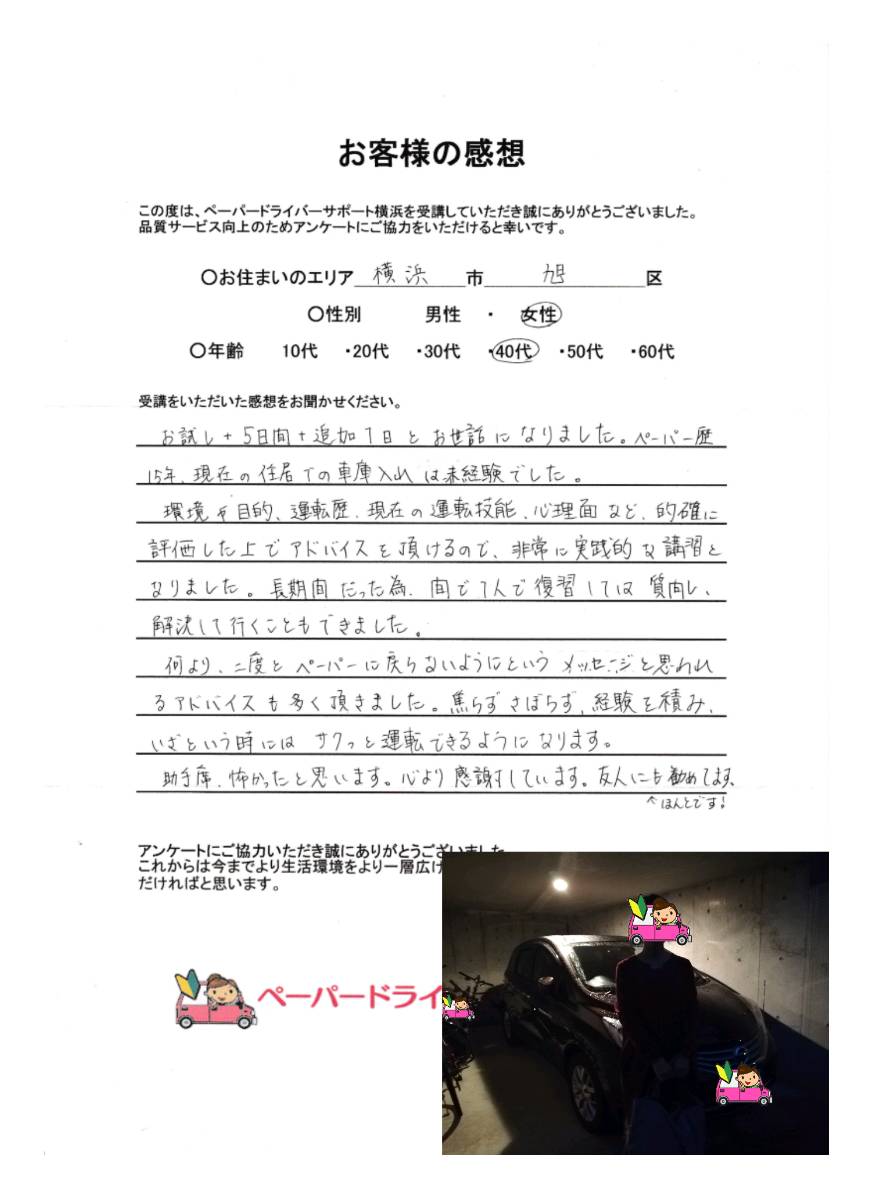 お客様の感想
この度は、ペーパードライバーサポート横浜を受講していただき誠にありがとうございました。
品質サービス向上のためアンケートにご協力をいただけると幸いです。
〇お住まいのエリア 横浜 市 旭 区
〇性別 男性 ・ 女性
〇年齢 10代 ・20代 ・30代 ・40代 ・50代 ・60代
受講をいただいた感想をお聞かせください。
お試し+5日間+追加1日とお世話になりました。ペーパー歴
15年、現在の住居での車庫入れは未経験でした。
環境や目的、運転歴、現在の運転技能、心理面など、的確に
評価した上でアドバイスを頂けるので、非常に実践的な講習と
なりました。長期間だった為、間で1人で復習しては質問し、
解決して行くこともできました。
何より、二度とペーパーに戻らないようにというメッセージと思われ
るアドバイスも多く頂きました。焦らずさぼらず、経験を積み、
いざという時にはサクっと運転できるようになります。
助手席、怖かったと思います。心より感謝しています。友人にも勧めてます。
^ほんとです!
アンケートにご協力いただき誠にありがとうございました
これからは今までより生活環境をより一層広げ
だければと思います。
ペーパードライ